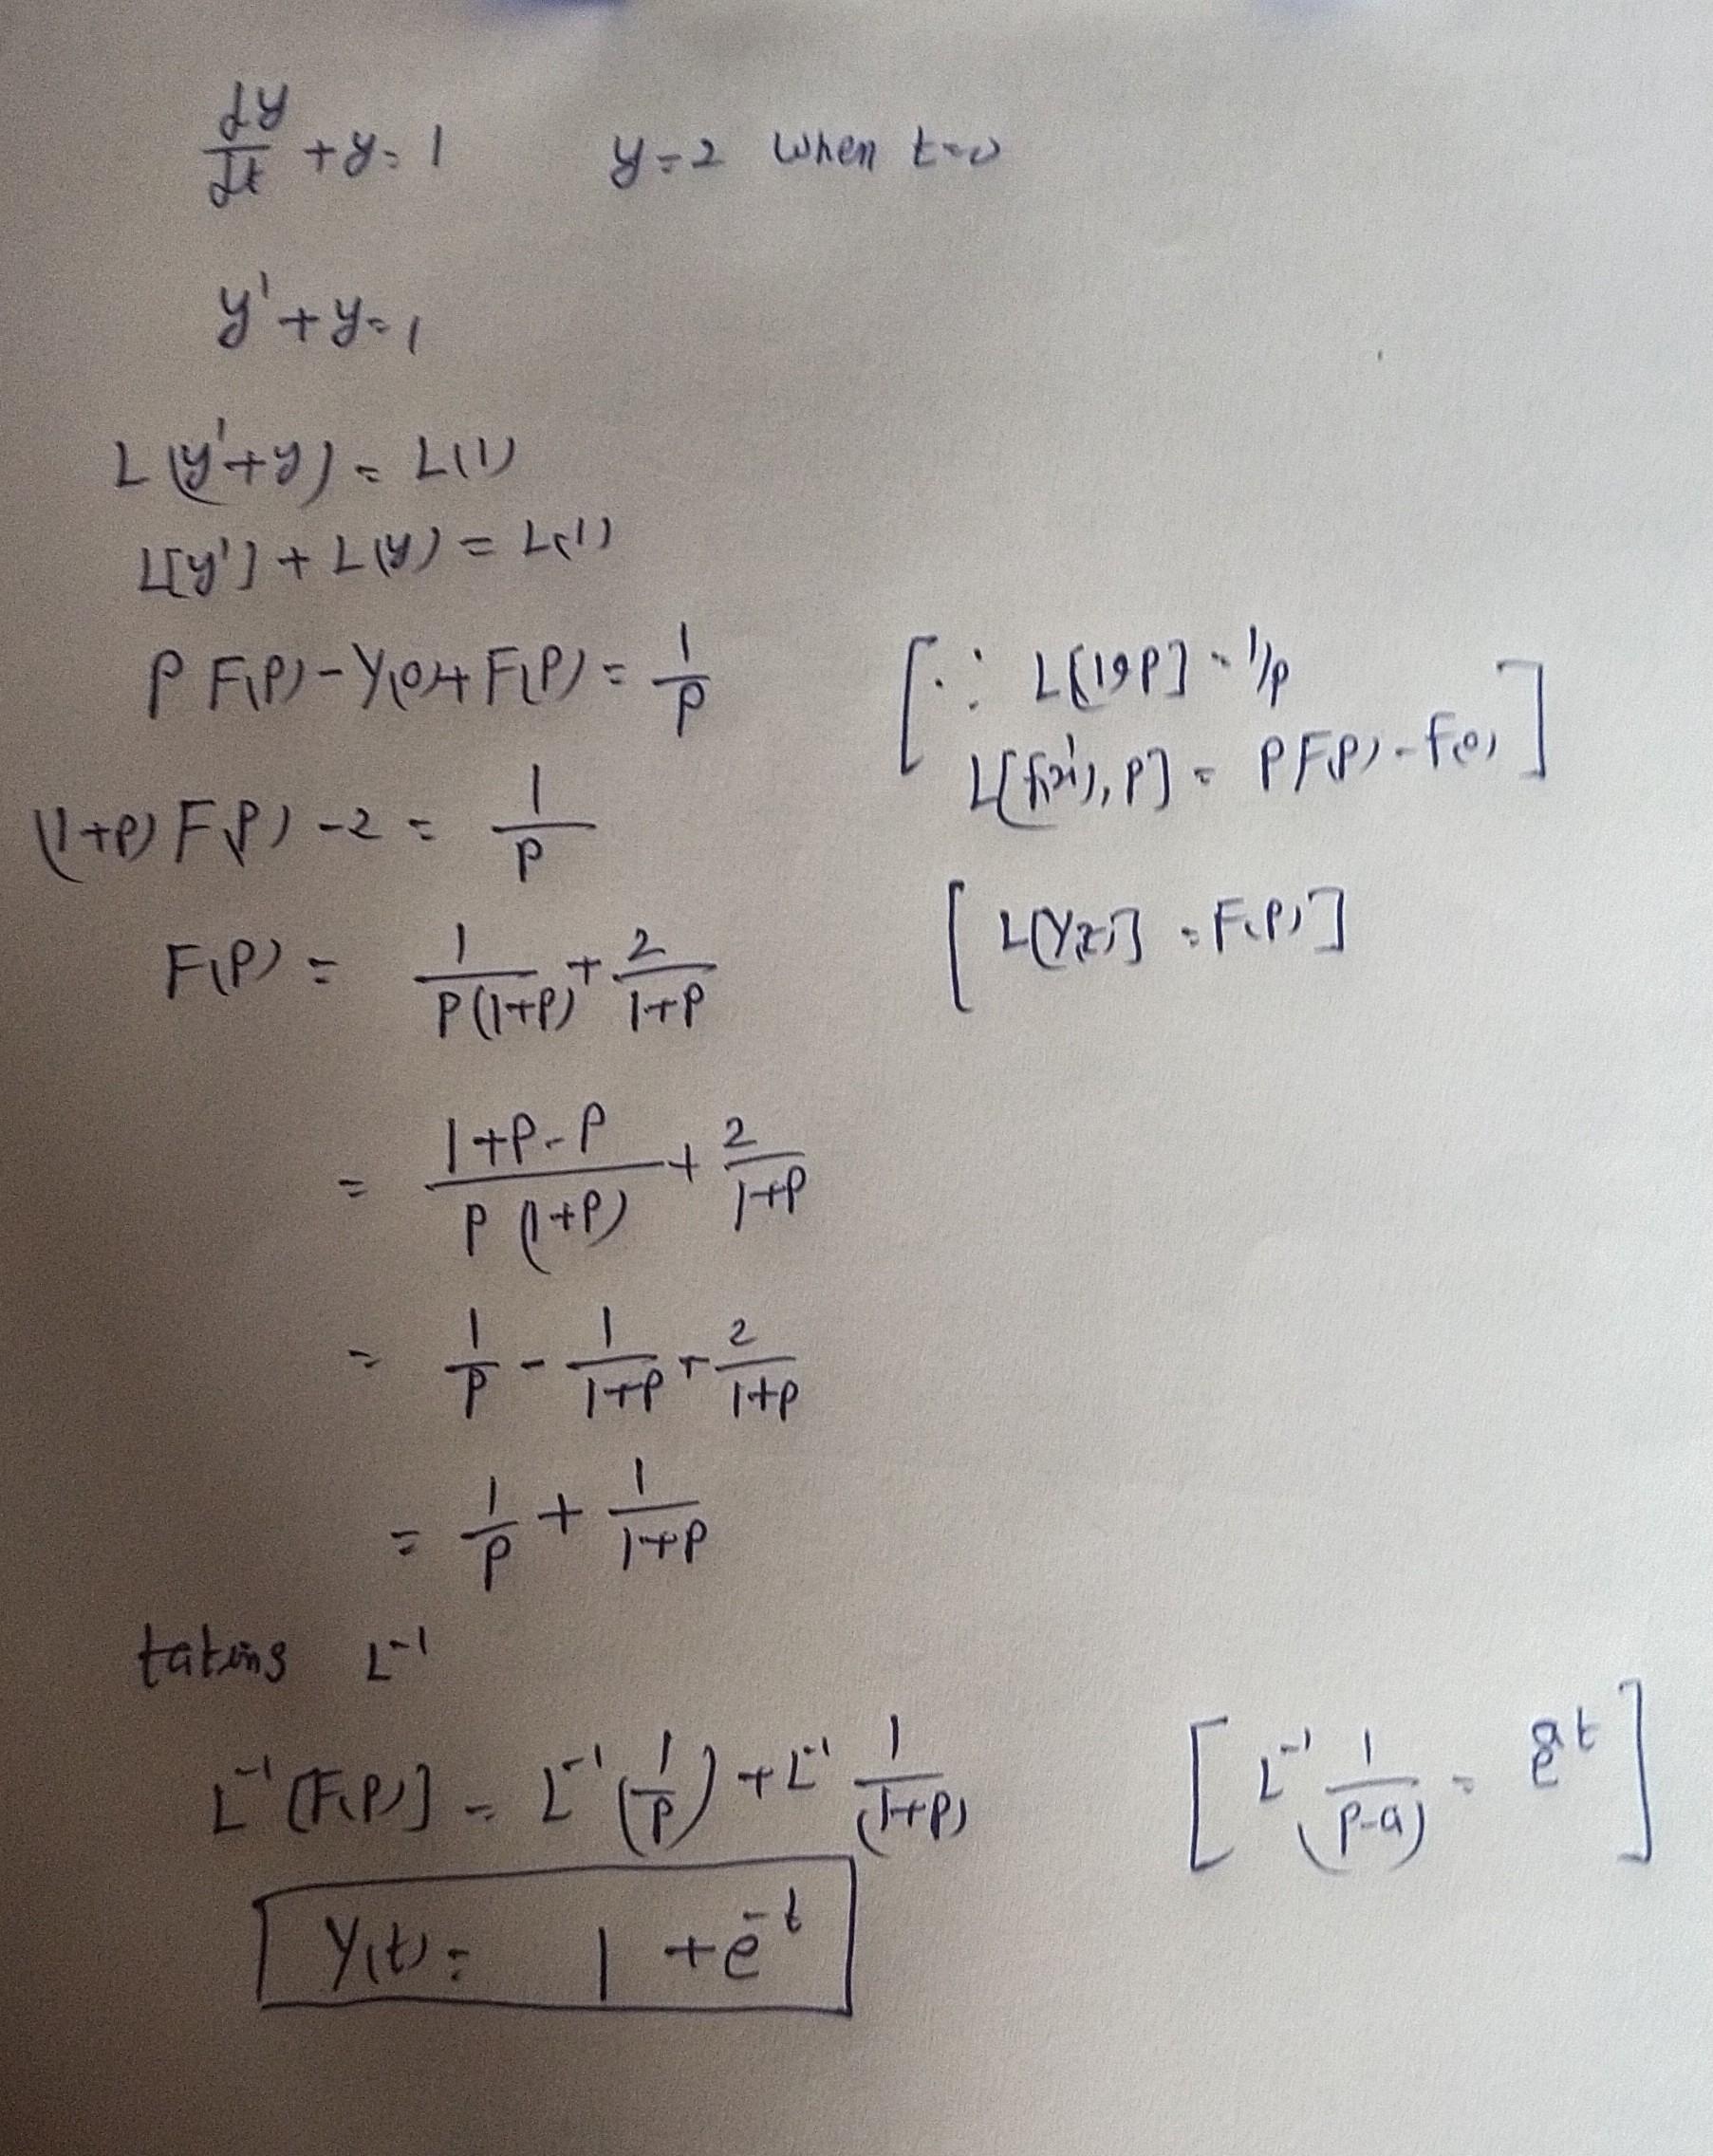 dy/dt + y = 1 y = 2 when t = 0
y' + y = 1
L(y' + y) = L(1)
L[y'] + L(y) = L(1)
P F(P) - Y(0) + F(P) = 1/P [∵ L[1, P] = 1/P
(1+P) F(P) - 2 = 1/P L[f'(x), P] = P F(P) - f(0)]
F(P) = 1/P(1+P) + 2/1+P [L[Y(x)] = F(P)]
= 1+P-P/P(1+P) + 2/1+P
= 1/P - 1/1+P + 2/1+P
= 1/P + 1/1+P
taking L⁻¹
L⁻¹[F(P)] = L⁻¹(1/P) + L⁻¹ 1/(1+P) [L⁻¹ 1/(P-a) = e^at]
Y(t) = 1 + e^-t